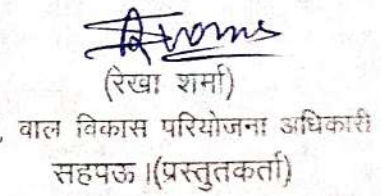 (रेखा शर्मा)
, वाल विकास परियोजना अधिकारी
सहपऊ ।(प्रस्तुतकर्ता)